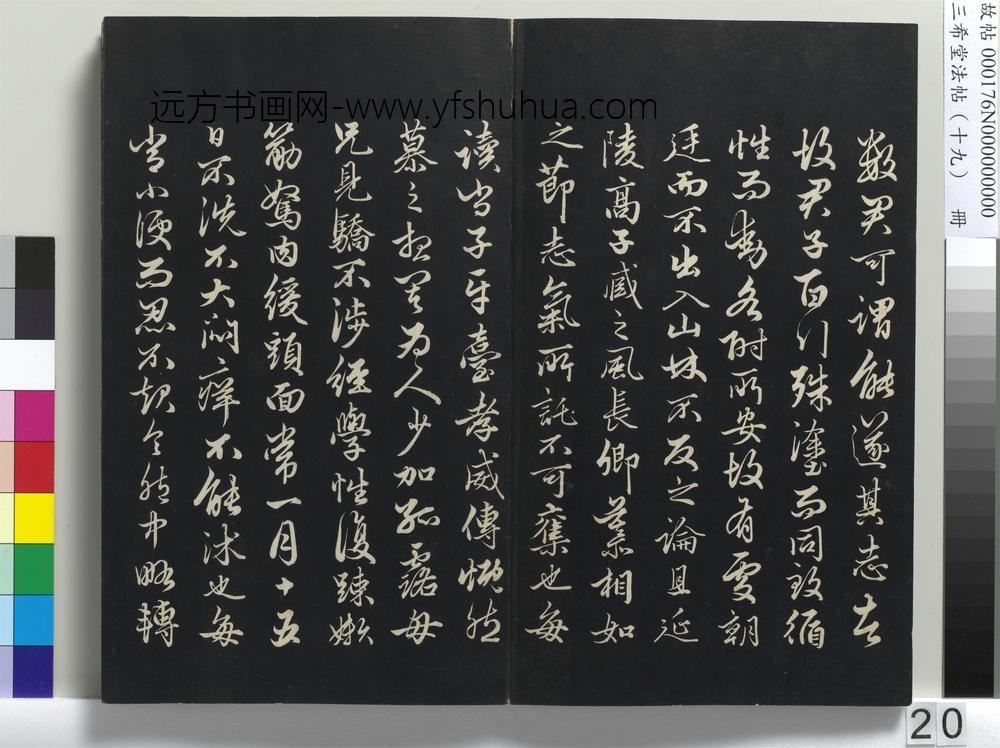 远方书画网-www.yfshuhua.com
故帖 000176N000000000
三希堂法帖（十九） 冊
數君可謂能遂其志者
故君子百行殊塗而同致循
性而動各附所安故有處朝
廷而不出入山林不反之論且延
陵高子臧之風長卿慕相如
之節志氣所託不可奪也每
讀尚子平臺孝威傳慨然
慕之想其為人少加孤露母
兄見驕不涉經學性復踈嬾
筋駑肉緩頭面常一月十五
日不洗不大悶癢不能沐也每
常小便而忍不起令胞中略轉
20